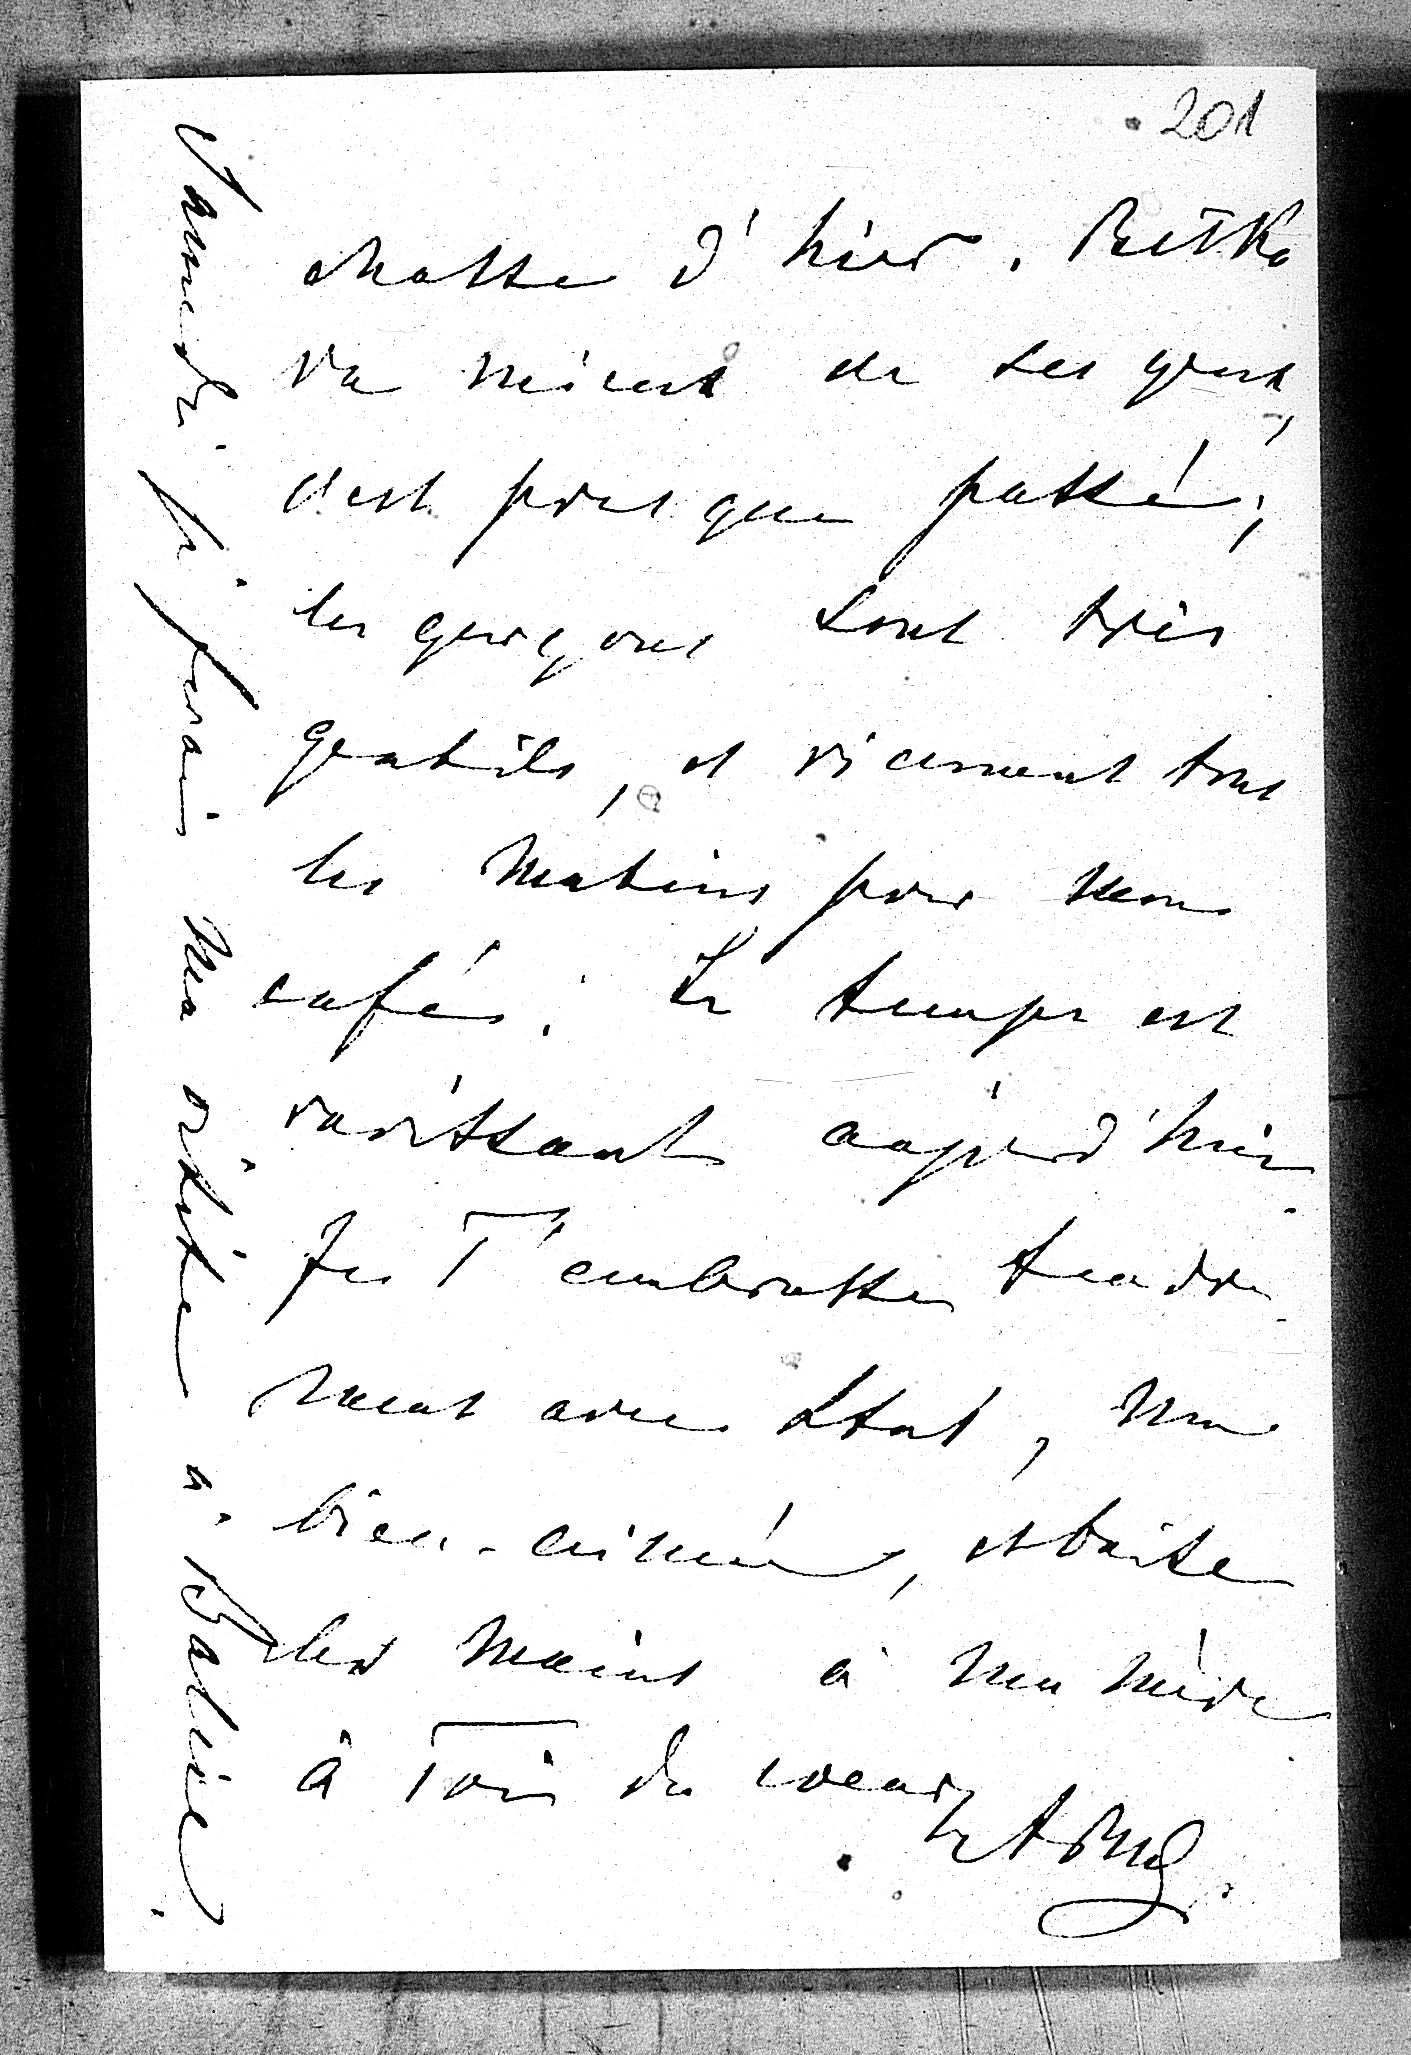 201
chasse d'hier. Betka
va mieux de ses yeux,
c'est presque passé;
les garçons sont très
gentils, et viennent tous
les matins pour mon
cafés. Le temps est
ravissant aujourd'hui
Je T'embrasse tendre-
ment avec Stas, mon
bien-aimé, et baise
les mains à ma mère
à Toi du coeur
Samedi je ferais ma visite à Balice.